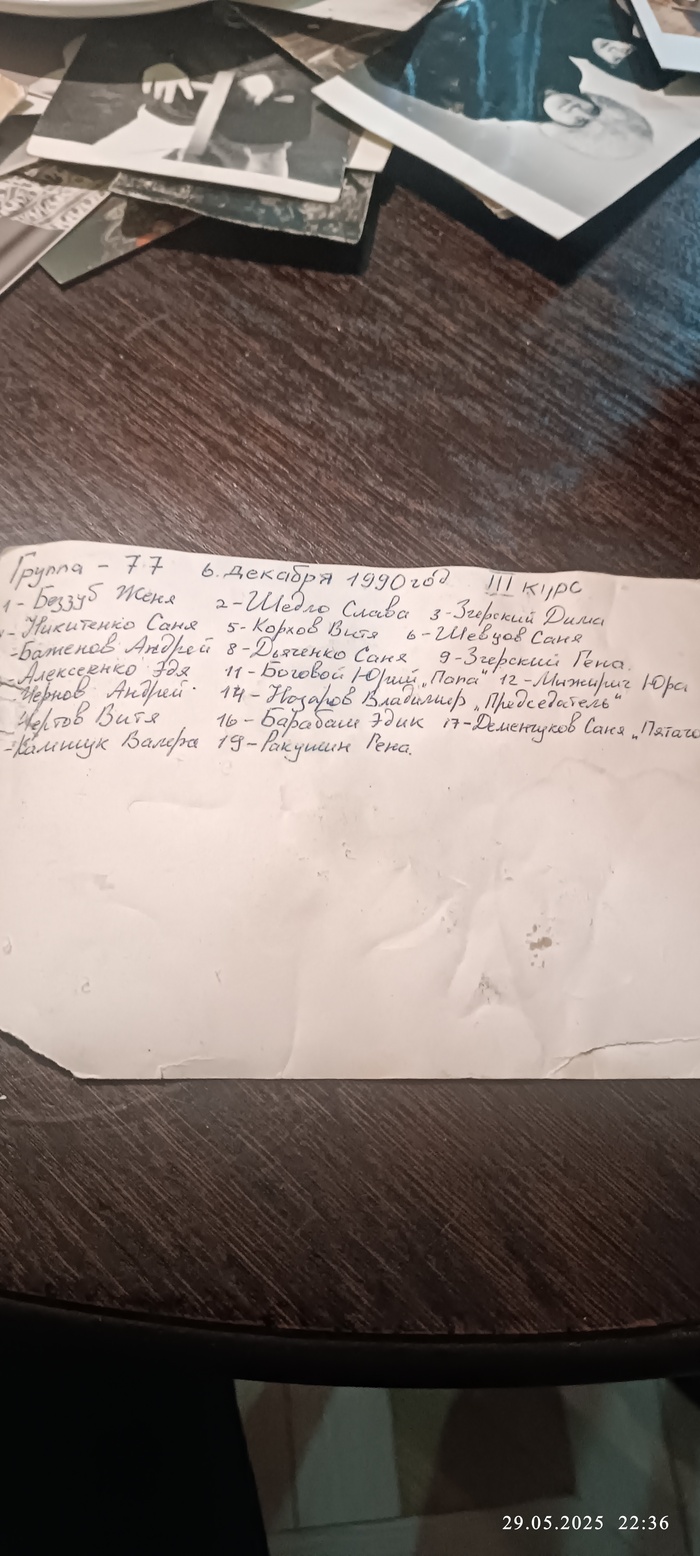 Группа - 77 6. Декабря 1990 год III курс
1 - Беззуб Женя 2 - Шедло Слава 3 - Згерский Дима
- Никитенко Саня 5 - Корхов Витя 6 - Шевцов Саня
- Баженов Андрей 8 - Дьяченко Саня 9 - Згерский Гена.
- Алексеенко Эдя 11 - Боговой Юрий „Папа“ 12 - Мижирич Юра
- Чернов Андрей. 14 - Назаров Владимир „Председатель“
- Чертов Витя 16 - Барабаш Эдик 17 - Деменчуков Саня
- Камшук Валера 19 - Ракушин Гена.
29.05.2025 22:36